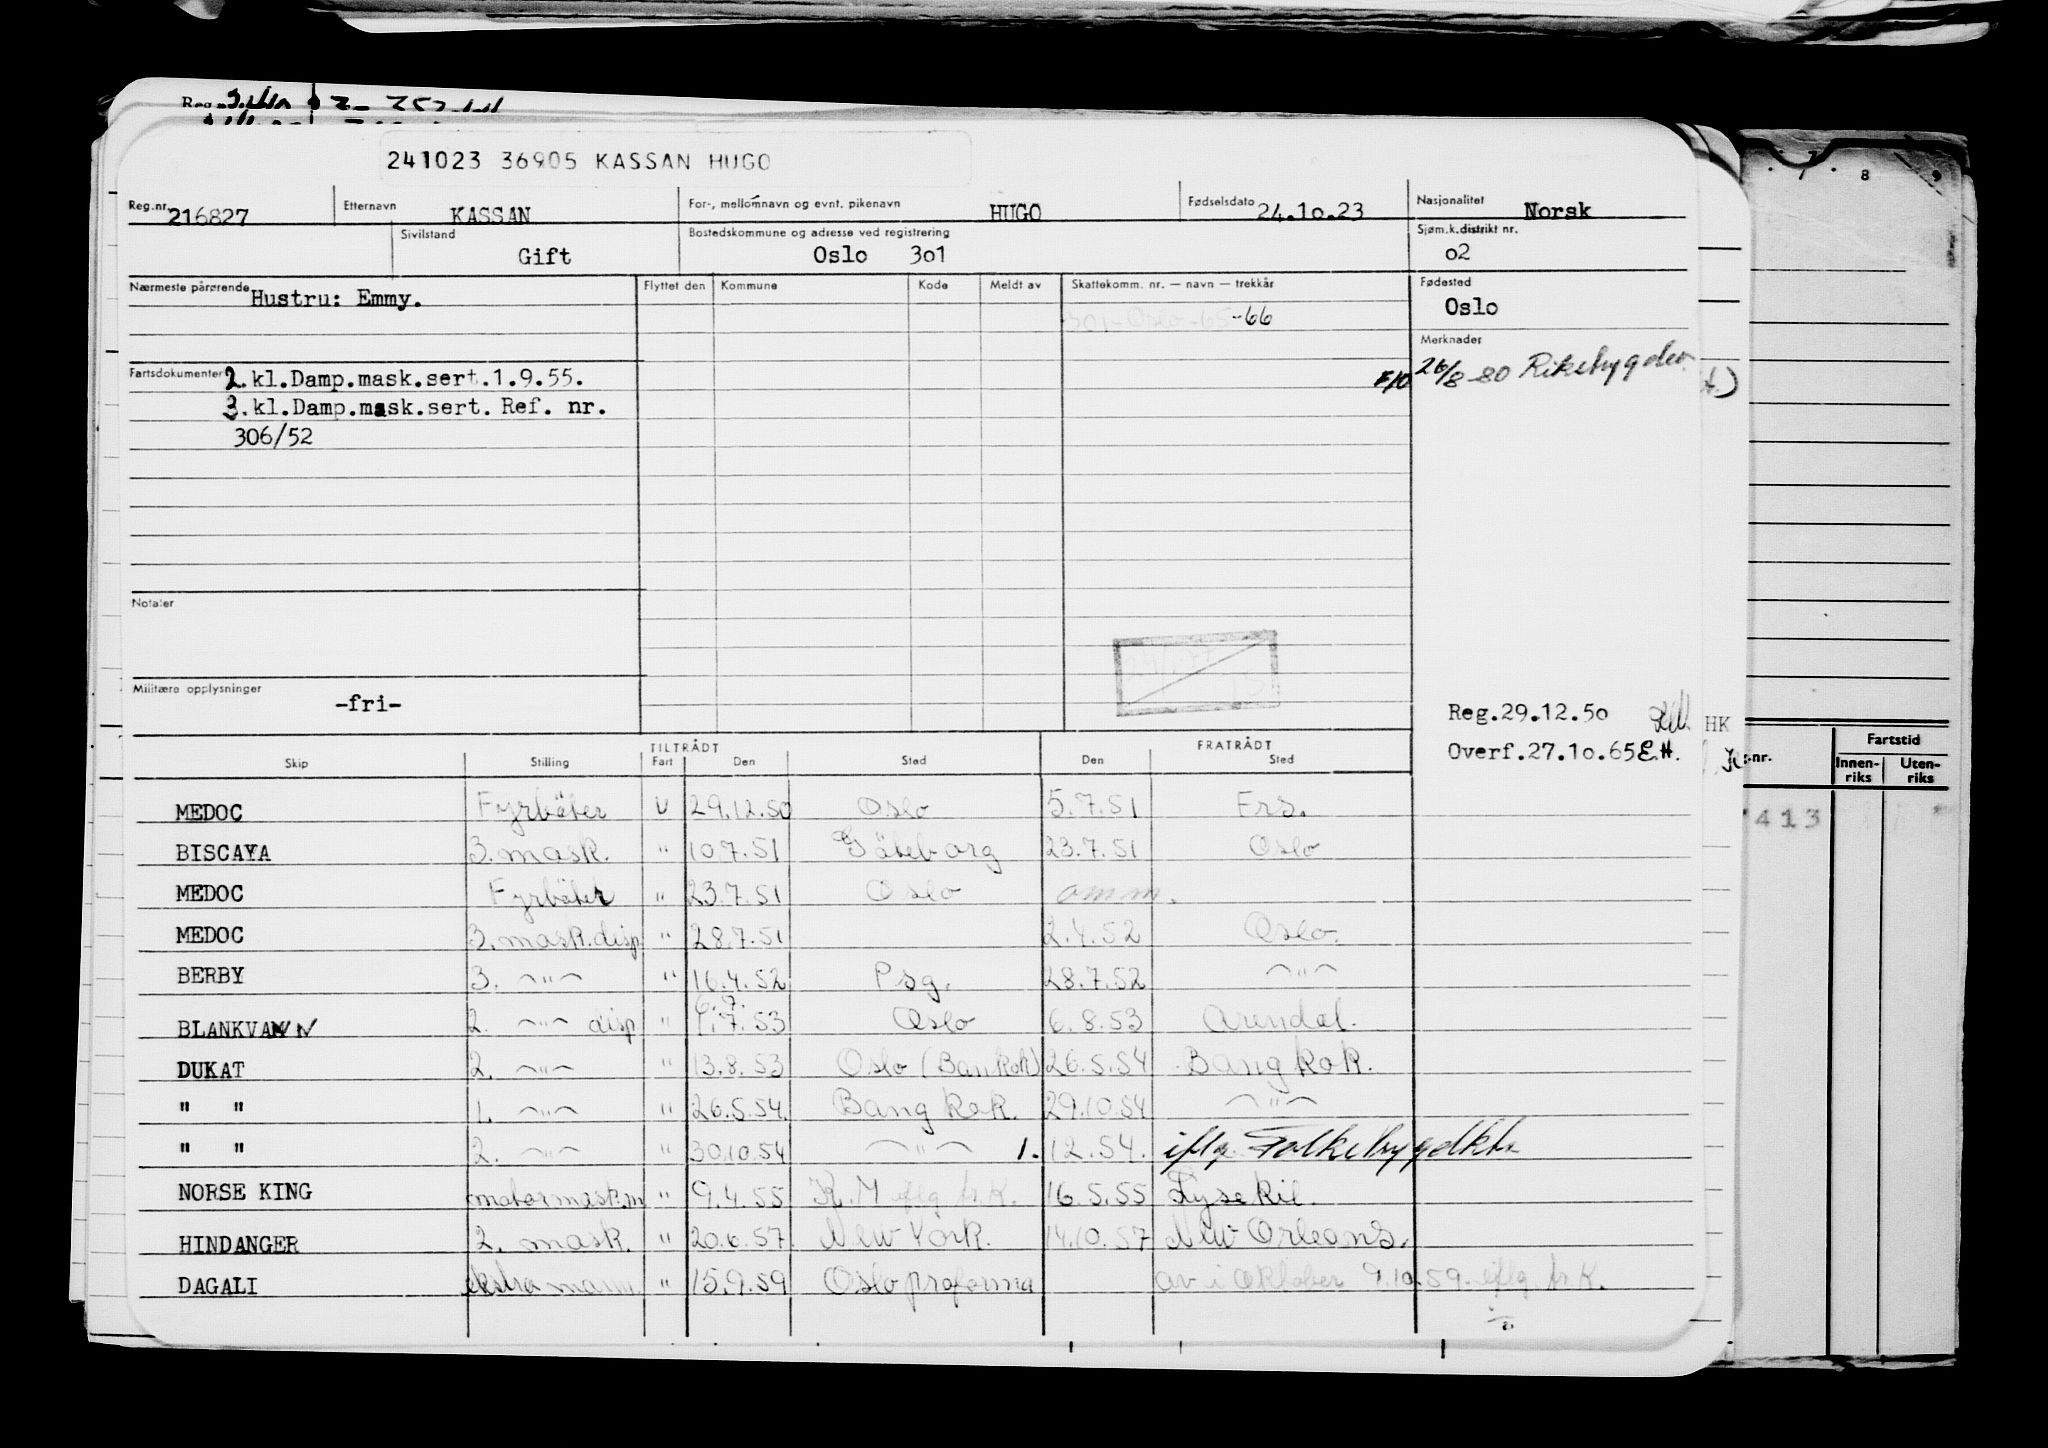 241023 36905 KASSAN HUGO
Reg.nr. 216827 Etternavn KASSAN For-, mellomnavn og evnt. pikenavn HUGO Fødselsdato 24.10.23 Nasjonalitet Norsk
Sivilstand Gift Bostedskommune og adresse ved registrering Oslo 301 Sjøm.k.distrikt nr. 02
Nærmeste pårørende Hustru: Emmy. Flyttet den Kommune Kode Meldt av Skattekomm. nr. — navn — trekkår Fødested Oslo
301-Oslo-65-66
Merknader
Fartsdokumenter 2.kl.Damp.mask.sert.1.9.55. 26/8-80
3.kl.Damp.mask.sert. Ref. nr.
306/52
Notater
Militære opplysninger -fri-
Reg.29.12.50 HK
Overf.27.10.65 E.H.
TILTRÅDT FRATRÅDT
Skip Stilling Fart Den Sted Den Sted
MEDOC Fyrbøter U 29.12.50 Oslo 5.7.51 Frs.
BISCAYA 3. mask. " 10.7.51 Göteborg 23.7.51 Oslo
MEDOC Fyrbøter " 23.7.51 Oslo omm.
MEDOC 3. mask.disp " 28.7.51 2.4.52 Oslo.
BERBY 3. -"- " 16.4.52 Psg. 28.7.52 -"-
6.7.
BLANKVANN 2. -"- disp " 1.7.53 Oslo 6.8.53 Arendal.
DUKAT 2. -"- " 13.8.53 Oslo (Bankok) 26.5.54 Bangkok.
" " 1. -"- " 26.5.54. Bangkok. 29.10.54 -"-
" " 2. -"- " 30.10.54 -"- 1.12.54. iflg.
NORSE KING motormask.m " 9.4.55 iflg. 16.5.55 Lysekil.
HINDANGER 2. mask. " 20.6.57. New York. 14.10.57 New Orleans.
DAGALI ekstra mann. " 15.9.59 Oslo proforma av i oktober 9.10.59. iflg. fr.K.
7 8 9
nr. Fartstid
Innen-riks Uten-riks
413